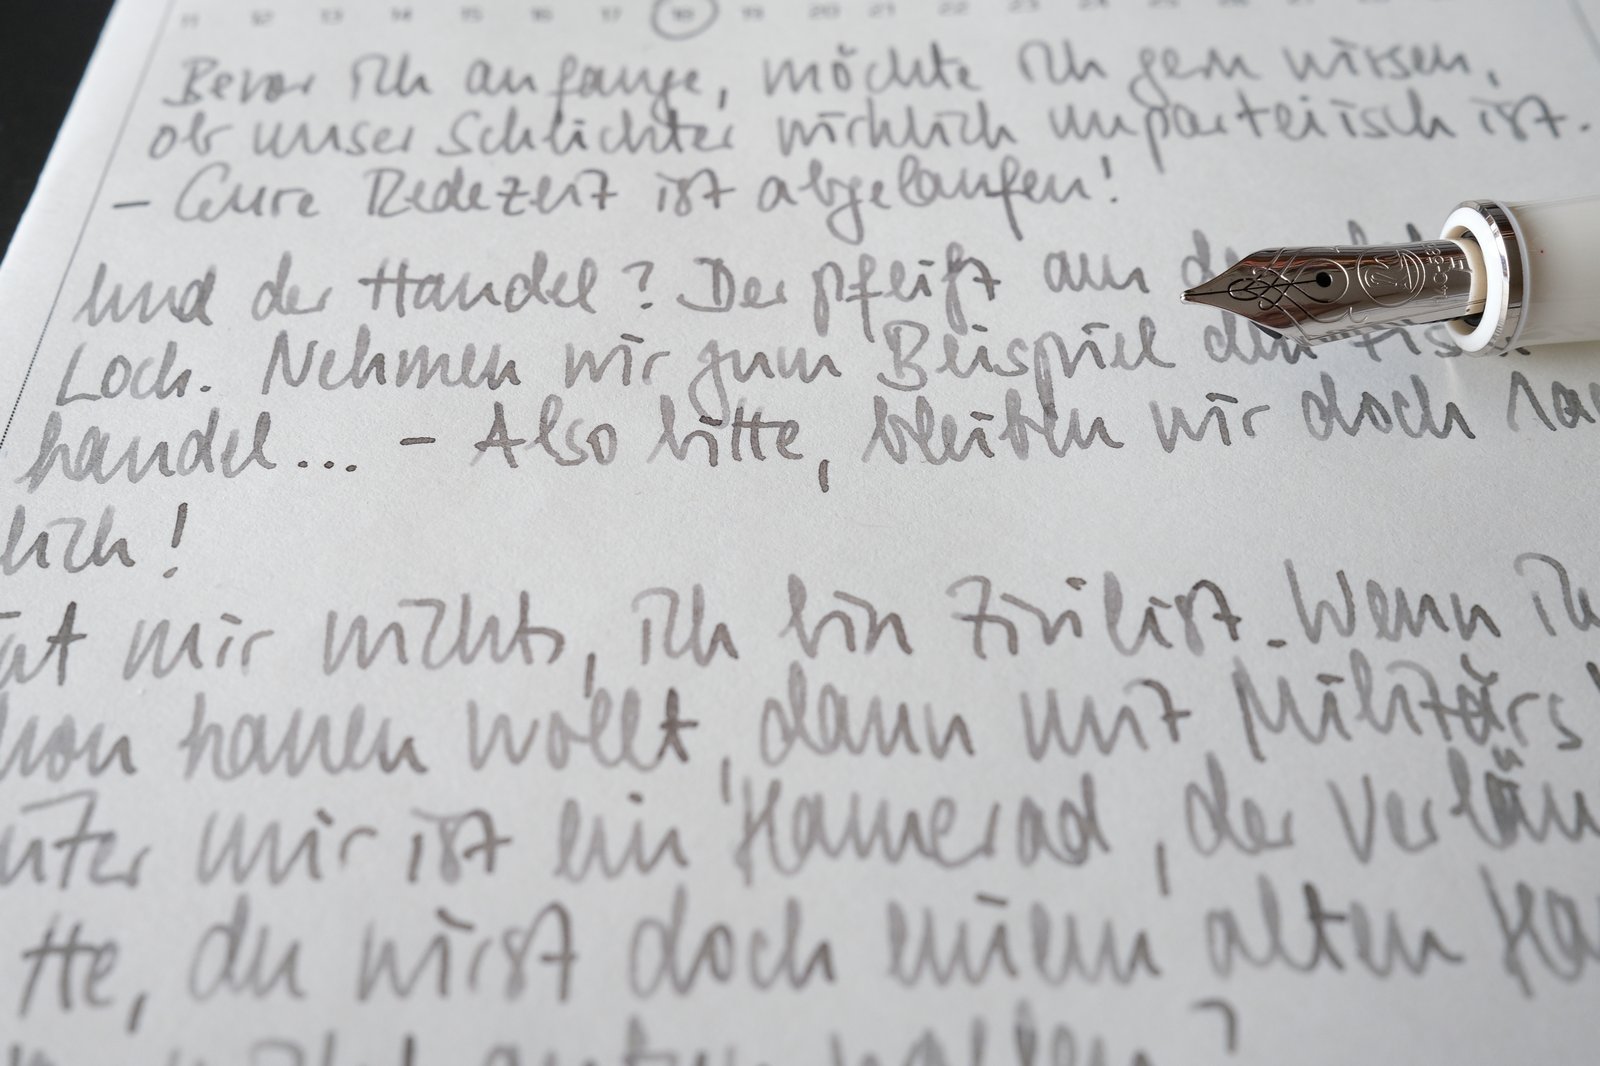 11 12 13 14 15 16 17 18 19 20 21 22 23 24 25 26 27 28
Bevor ich anfange, möchte ich gern wissen,
ob unser Schlichter wirklich unparteiisch ist.
– Eure Redezeit ist abgelaufen!
Und der Handel? Der pfeift aus dem
Loch. Nehmen wir zum Beispiel den
handel... – Also bitte, bleiben wir doch
lich!
mir nichts, ich bin Zivilist. Wenn ich
hauen wollt, dann mit Militärs!
mir ist ein Kamerad, der
du wirst doch einem alten